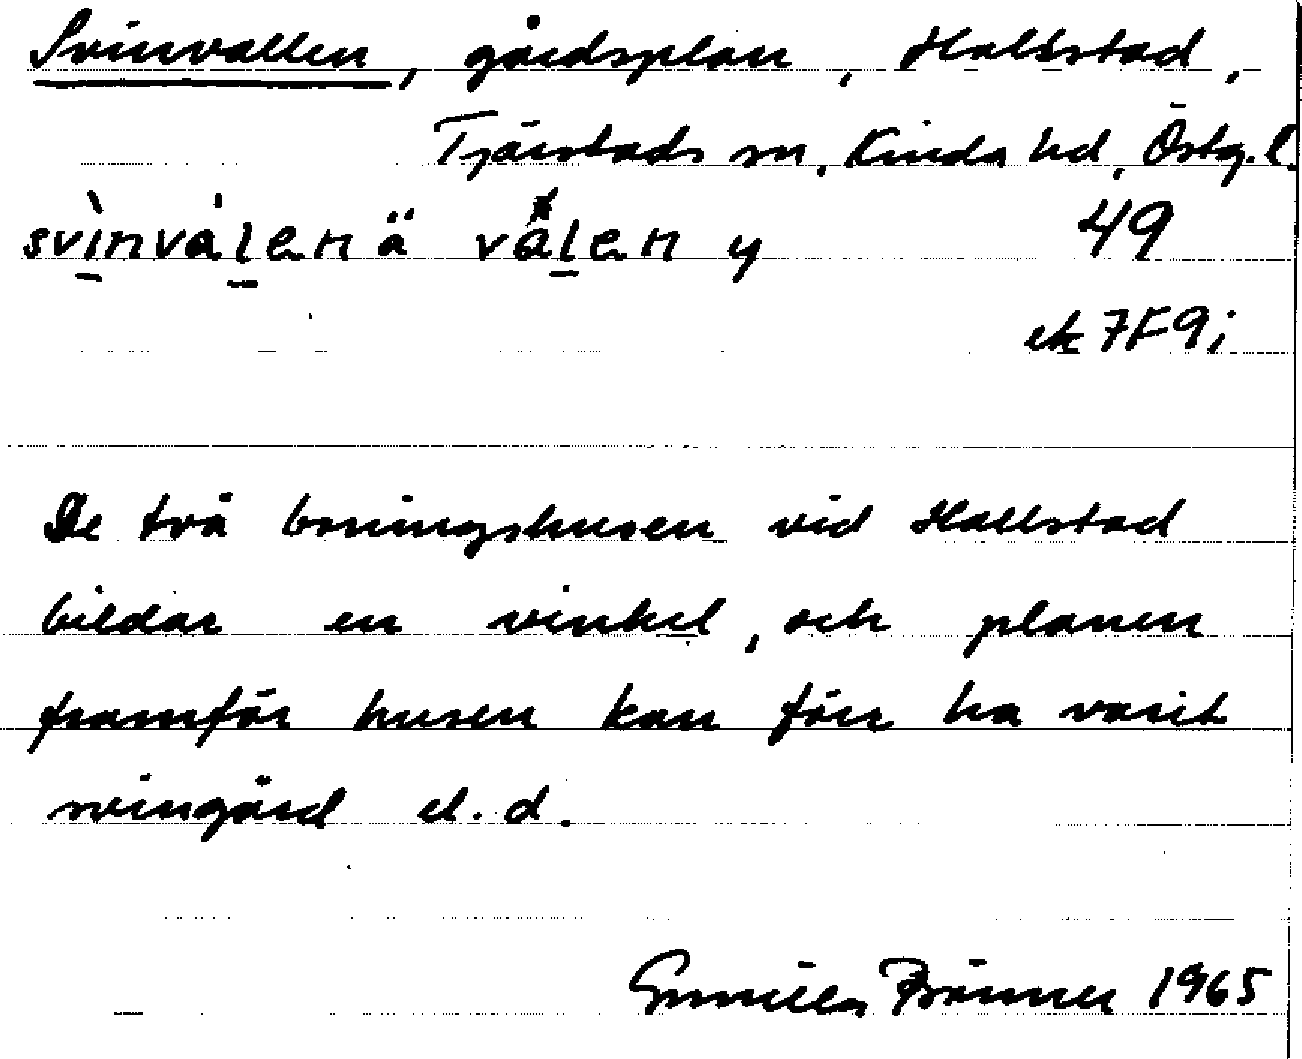 Svinvallen, gårdsplan, Hallstad,
Tjärstads sn, Kinda hd, Östg. l.
svìnválenä válen y 49
ek 7F9i
De två boningshusen vid Hallstad
bildar en vinkel, och planen
framför husen kan förr ha varit
svingård el. d.
Gunilla 1965